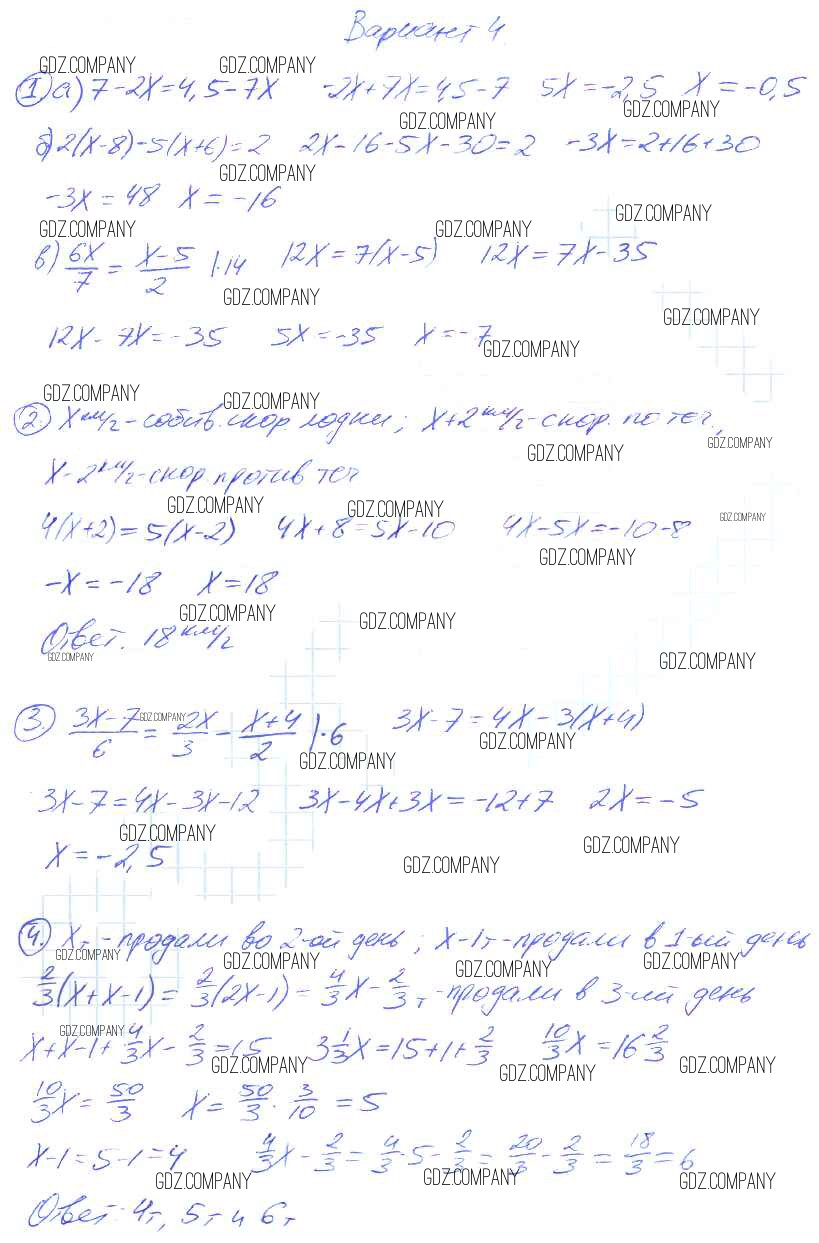 Вариант 4.
GDZ.COMPANY GDZ.COMPANY
1. а) 7-2x=4,5-7x -2x+7x=4,5-7 5x=-2,5 x=-0,5
GDZ.COMPANY GDZ.COMPANY
б) 2(x-8)-5(x+6)=2 2x-16-5x-30=2 -3x=2+16+30
GDZ.COMPANY
-3x=48 x=-16
GDZ.COMPANY GDZ.COMPANY GDZ.COMPANY
в) 6x/7 = x-5/2 |·14 12x=7(x-5) 12x=7x-35
GDZ.COMPANY GDZ.COMPANY
12x-7x=-35 5x=-35 x=-7
GDZ.COMPANY
GDZ.COMPANY GDZ.COMPANY
2. x км/г - собств. скор лодки; x+2 км/г - скор. по теч.,
GDZ.COMPANY GDZ.COMPANY
x-2 км/г - скор. против теч
GDZ.COMPANY GDZ.COMPANY GDZ.COMPANY
4(x+2)=5(x-2) 4x+8=5x-10 4x-5x=-10-8
GDZ.COMPANY
-x=-18 x=18
GDZ.COMPANY GDZ.COMPANY
Ответ. 18 км/г
GDZ.COMPANY GDZ.COMPANY
3. 3x-7/6 = 2x/3 - x+4/2 |·6 3x-7=4x-3(x+4)
GDZ.COMPANY GDZ.COMPANY GDZ.COMPANY
3x-7=4x-3x-12 3x-4x+3x=-12+7 2x=-5
GDZ.COMPANY GDZ.COMPANY
x=-2,5
GDZ.COMPANY
4. xт - продали во 2-ой день; x-1т - продали в 1-ый день
GDZ.COMPANY GDZ.COMPANY GDZ.COMPANY GDZ.COMPANY
2/3(x+x-1)=2/3(2x-1)=4/3x-2/3т - продали в 3-ий день
GDZ.COMPANY
x+x-1+4/3x-2/3=15 3 1/3x=15+1+2/3 10/3x=16 2/3
GDZ.COMPANY GDZ.COMPANY GDZ.COMPANY
10/3x=50/3 x=50/3·3/10=5
x-1=5-1=4 4/3x-2/3=4/3·5-2/3=20/3-2/3=18/3=6
GDZ.COMPANY GDZ.COMPANY GDZ.COMPANY
Ответ: 4т, 5т и 6т